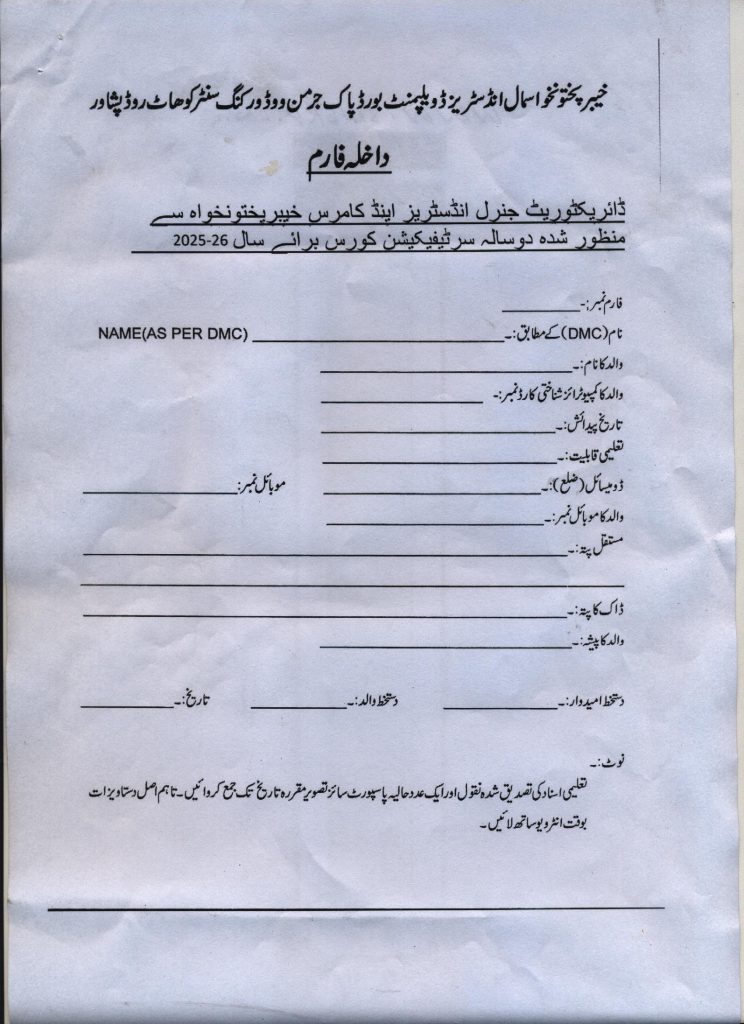 خیبر پختونخوا سمال انڈسٹریز ڈویلپمنٹ بورڈ پاک جرمن ووڈ ورکنگ سنٹر کوہاٹ روڈ پشاور
داخلہ فارم
ڈائریکٹوریٹ جنرل انڈسٹریز اینڈ کامرس خیبرپختونخواہ سے
منظور شدہ دوسالہ سرٹیفیکیشن کورس برائے سال 26-2025
فارم نمبر:-
نام (DMC) کے مطابق:۔ NAME(AS PER DMC)
والد کا نام:۔
والد کا کمپیوٹرائز شناختی کارڈ نمبر:-
تاریخ پیدائش:۔
تعلیمی قابلیت:۔
ڈومیسائل (ضلع):۔ موبائل نمبر:
والد کا موبائل نمبر:۔
مستقل پتہ:۔
ڈاک کا پتہ:۔
والد کا پیشہ:۔
دستخط امیدوار:۔ دستخط والد:۔ تاریخ:۔
نوٹ:۔
تعلیمی اسناد کی تصدیق شدہ نقول اور ایک عدد حالیہ پاسپورٹ سائز تصویر مقررہ تاریخ تک جمع کروائیں۔ تاہم اصل دستاویزات
بوقت انٹرویو ساتھ لائیں۔